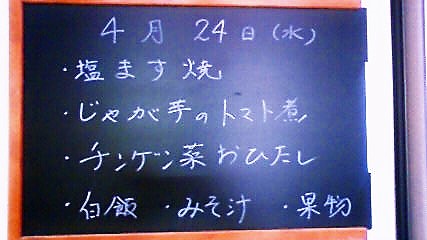 4月 24日(水)
・塩ます焼
・じゃが芋のトマト煮
・チンゲン菜おひたし
・白飯 ・みそ汁 ・果物